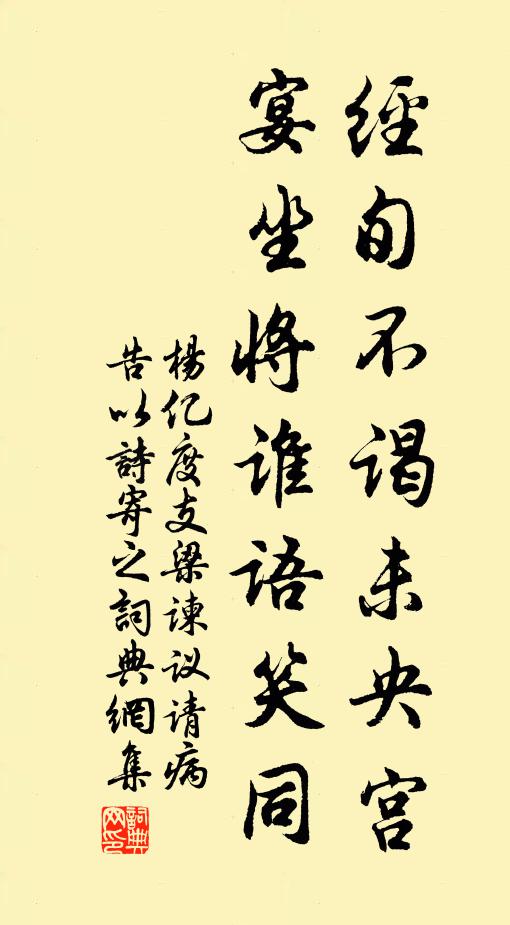 經旬不谒未央宫
宴坐将谁語笑同
楊亿度支梁谏议请病
告以詩寄之詞典網集
詞典
网印